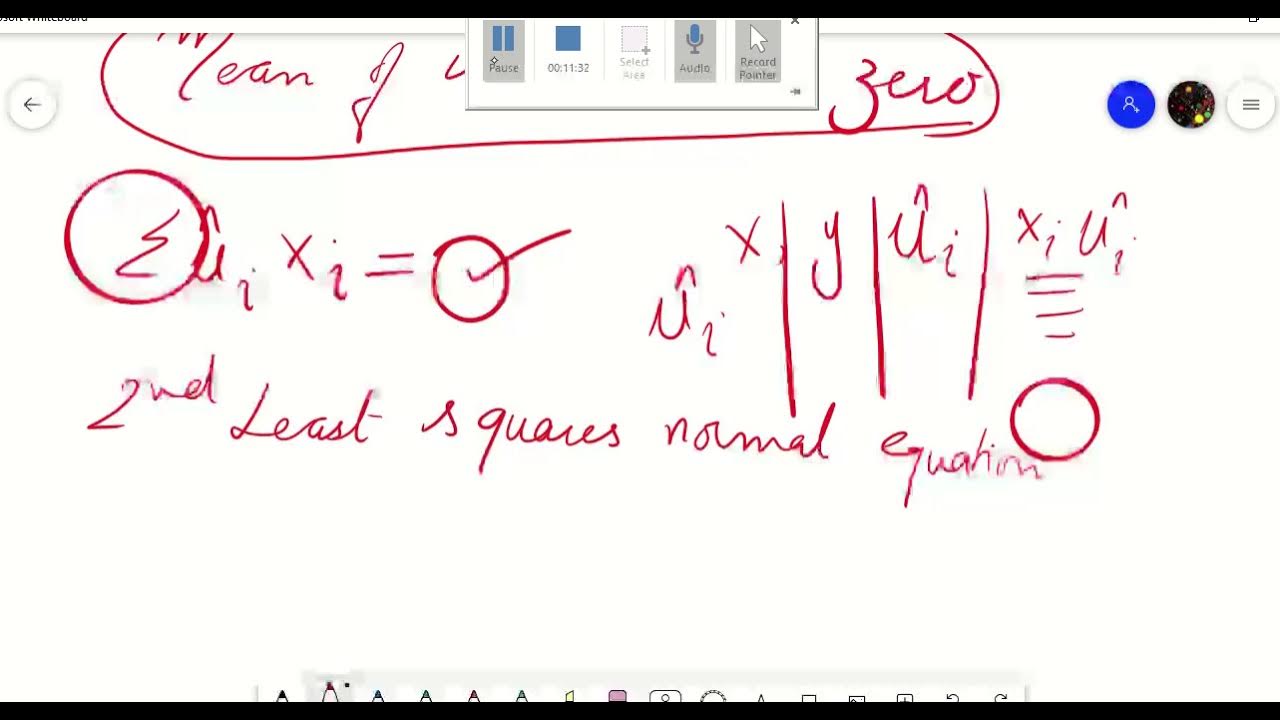 osoft Whiteboard
Pause
00:11:32
Select Area
Audio
Record Pointer
Mean of zero
Σûᵢ xᵢ = 0
x y ûᵢ xᵢ ûᵢ
ûᵢ
0
2nd Least squares normal equation